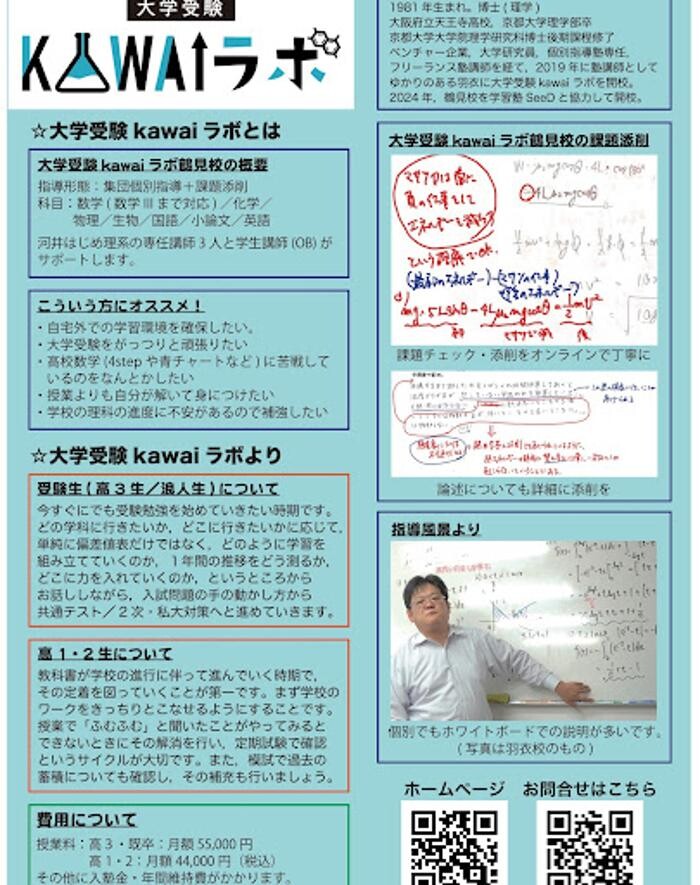 大学受験
KAWAIラボ
☆大学受験 kawai ラボとは
大学受験 kawai ラボ鶴見校の概要
指導形態：集団個別指導＋課題添削
科目：数学 ( 数学Ⅲまで対応 ) ／化学／
物理／生物／国語／小論文／英語
河井はじめ理系の専任講師 3 人と学生講師 (OB) が
サポートします。
こういう方にオススメ！
・自宅外での学習環境を確保したい。
・大学受験をがっつりと頑張りたい
・高校数学 (4step や青チャートなど ) に苦戦して
いるのをなんとかしたい
・授業よりも自分が解いて身につけたい
・学校の理科の進度に不安があるので補強したい
☆大学受験 kawai ラボより
受験生 ( 高 3 生／浪人生 ) について
今すぐにでも受験勉強を始めていきたい時期です。
どの学科に行きたいか，どこに行きたいかに応じて，
単純に偏差値表だけではなく，どのように学習を
組み立てていくのか，１年間の推移をどう測るか，
どこに力を入れていくのか，というところから
お話ししながら，入試問題の手の動かし方から
共通テスト／２次・私大対策へと進めていきます。
高 1・2 生について
教科書が学校の進行に伴って進んでいく時期で，
その定着を図っていくことが第一です。まず学校の
ワークをきっちりとこなせるようにすることです。
授業で「ふむふむ」と聞いたことがやってみると
できないときにその解消を行い，定期試験で確認
というサイクルが大切です。また，模試で過去の
蓄積についても確認し，その補充も行いましょう。
費用について
授業料：高 3・既卒：月額 55,000 円
高 1・2：月額 44,000 円（税込）
その他に入塾金・年間維持費がかかります。
1981 年生まれ。博士 ( 理学 )
大阪府立天王寺高校，京都大学理学部卒
京都大学大学院理学研究科博士後期課程修了
ベンチャー企業，大学研究員，個別指導塾専任，
フリーランス塾講師を経て，2019 年に塾講師として
ゆかりのある羽衣に大学受験 kawai ラボを開校。
2024 年，鶴見校を学習塾 SeeD と協力して開校。
大学受験 kawai ラボ鶴見校の課題添削
課題チェック・添削をオンラインで丁寧に
論述についても詳細に添削を
指導風景より
個別でもホワイトボードでの説明が多いです。
( 写真は羽衣校のもの )
ホームページ
お問合せはこちら